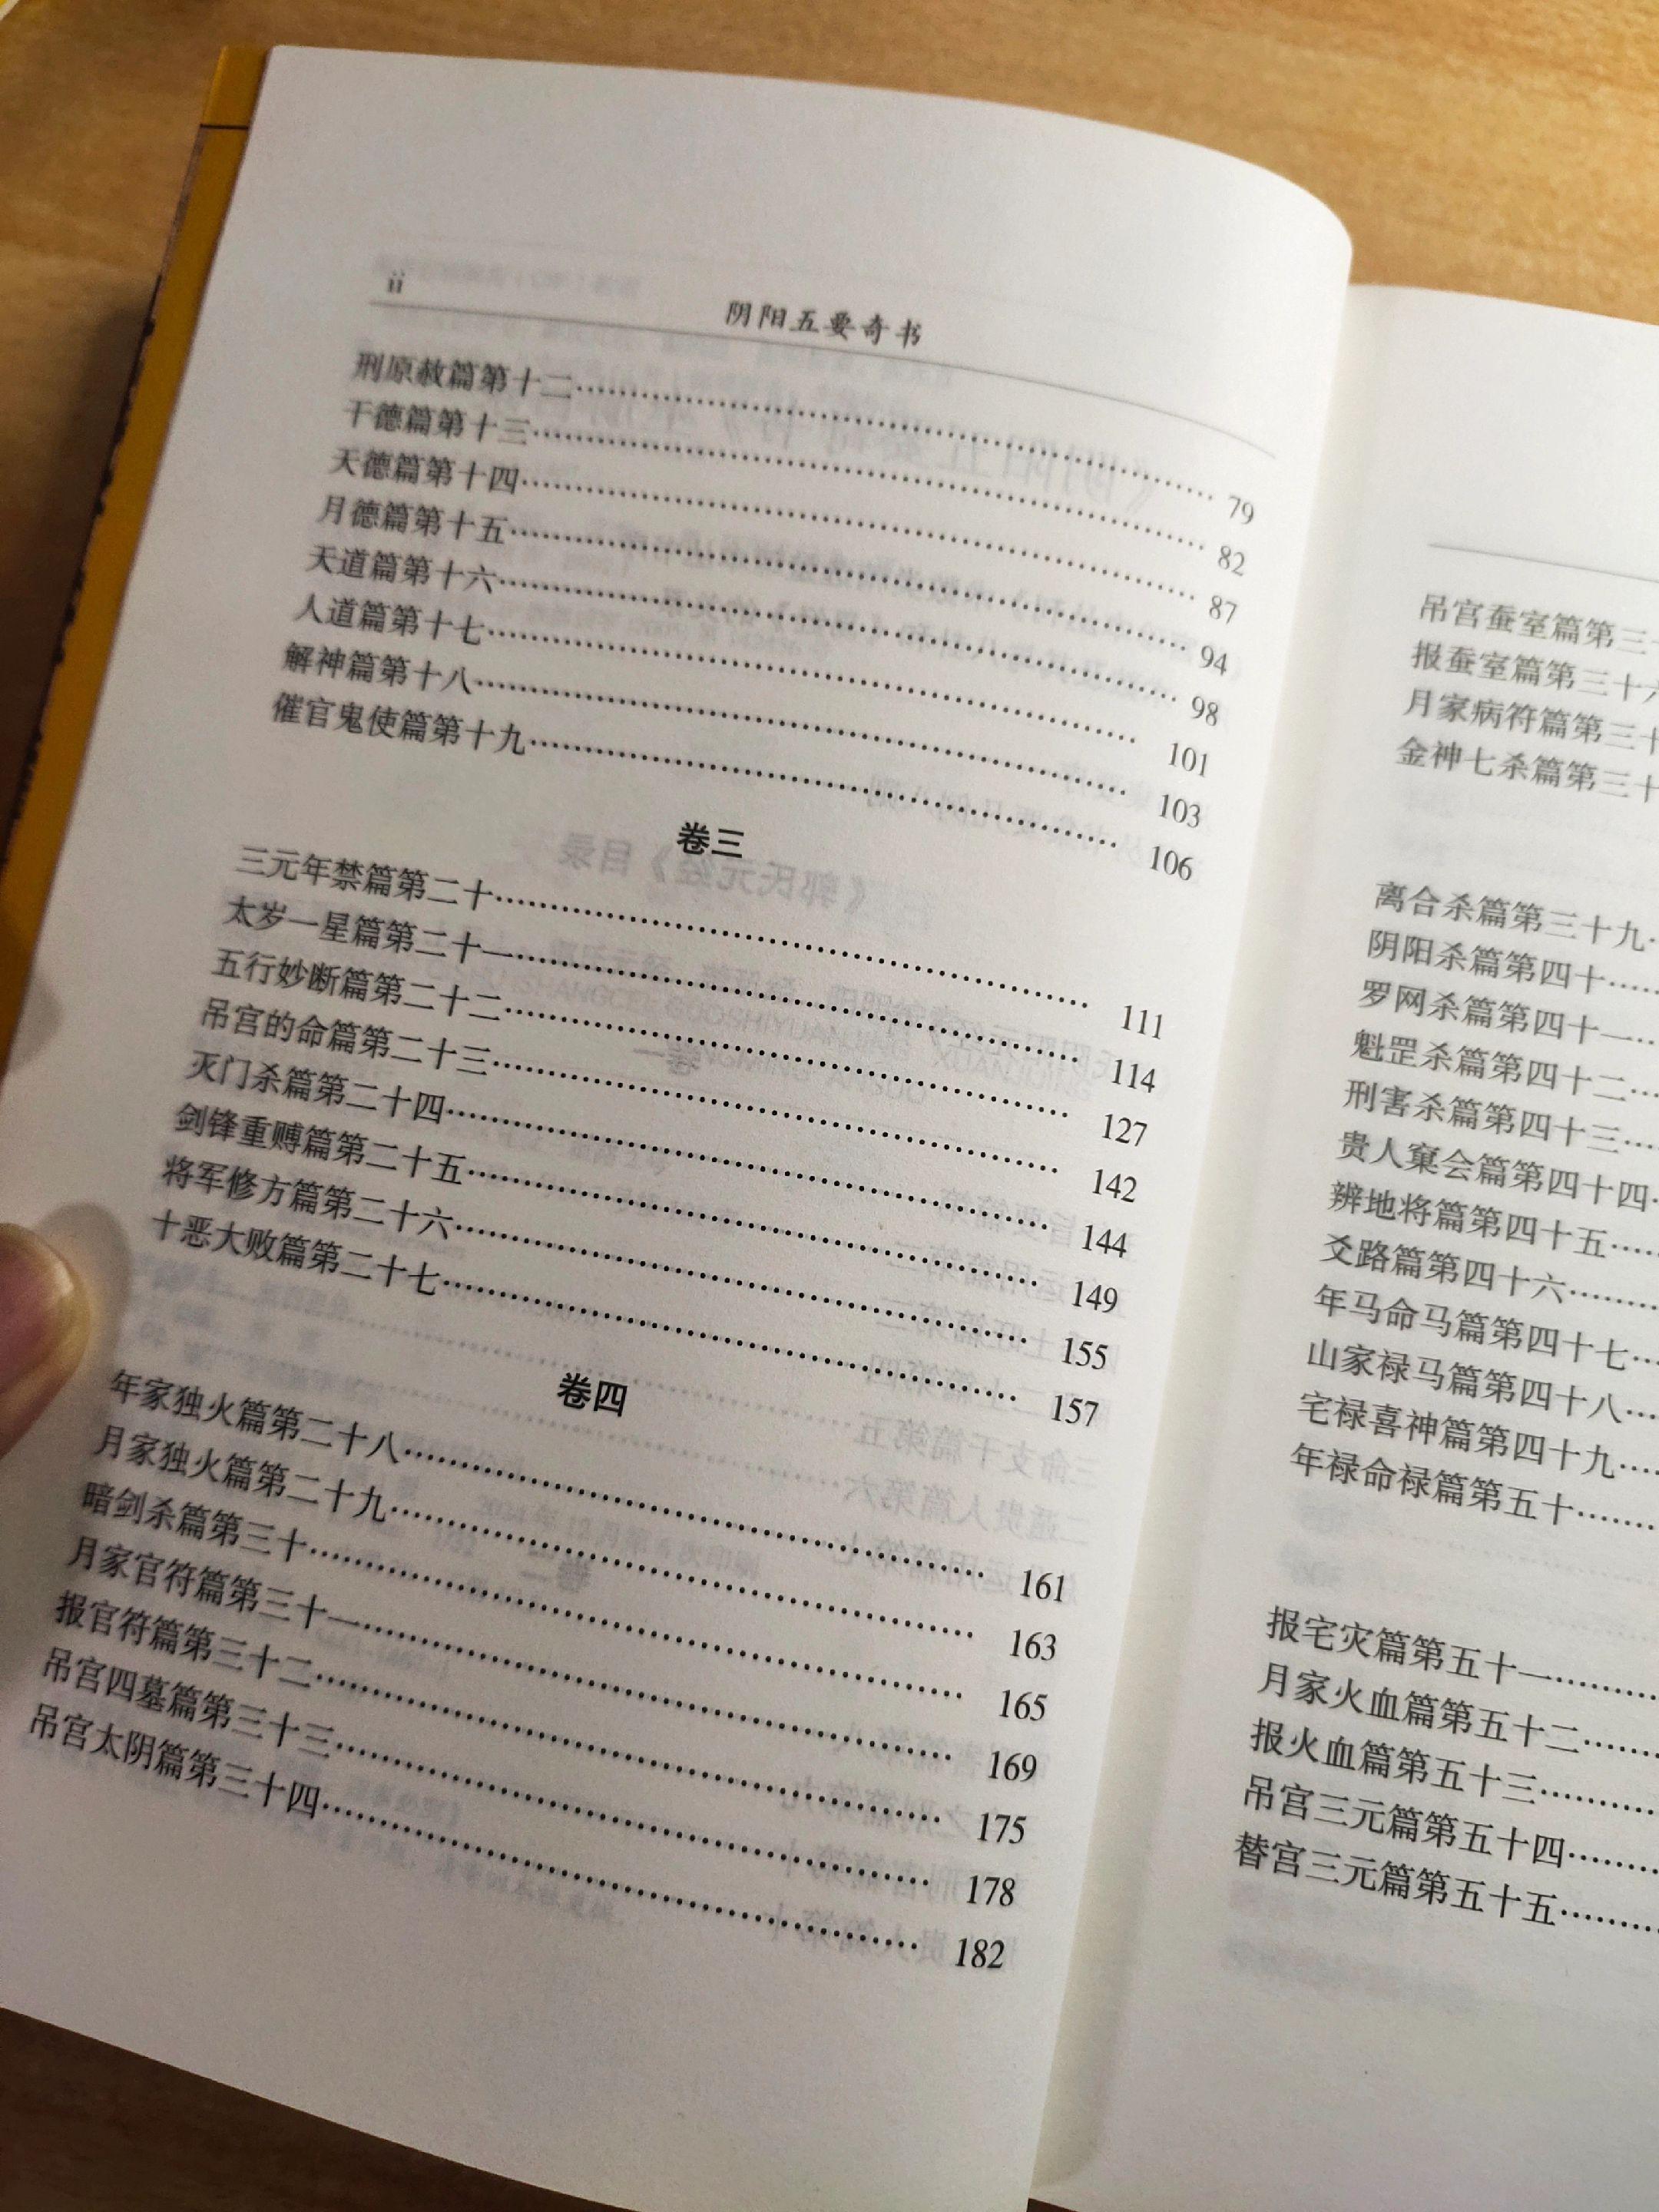 ii
阴阳五要奇书
刑原赦篇第十二…………79
干德篇第十三…………82
天德篇第十四…………87
月德篇第十五…………94
天道篇第十六…………98
人道篇第十七…………101
解神篇第十八…………103
催官鬼使篇第十九…………106
卷三
三元年禁篇第二十…………111
太岁一星篇第二十一…………114
五行妙断篇第二十二…………127
吊宫的命篇第二十三…………142
灭门杀篇第二十四…………144
剑锋重赙篇第二十五…………149
将军修方篇第二十六…………155
十恶大败篇第二十七…………157
卷四
年家独火篇第二十八…………161
月家独火篇第二十九…………163
暗剑杀篇第三十…………165
月家官符篇第三十一…………169
报官符篇第三十二…………175
吊宫四墓篇第三十三…………178
吊宫太阴篇第三十四…………182
吊宫蚕室篇第三
报蚕室篇第三十六
月家病符篇第三十
金神七杀篇第三十
离合杀篇第三十九
阴阳杀篇第四十……
罗网杀篇第四十一…
魁罡杀篇第四十二…
刑害杀篇第四十三…
贵人窠会篇第四十四
辨地将篇第四十五……
爻路篇第四十六………
年马命马篇第四十七…
山家禄马篇第四十八…
宅禄喜神篇第四十九…
年禄命禄篇第五十……
报宅灾篇第五十一………
月家火血篇第五十二……
报火血篇第五十三………
吊宫三元篇第五十四……
替宫三元篇第五十五……